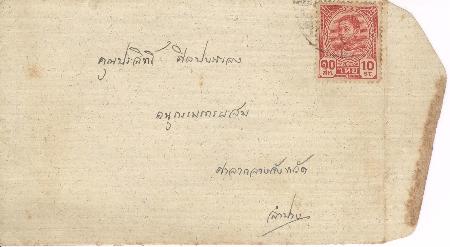 คุณประสิทธิ์ ศิลปบรรเลง
อนุกรรมการผสม
ศาลากลางจังหวัด
ลำปาง
๑๐ ไทย 10
สต. ST.